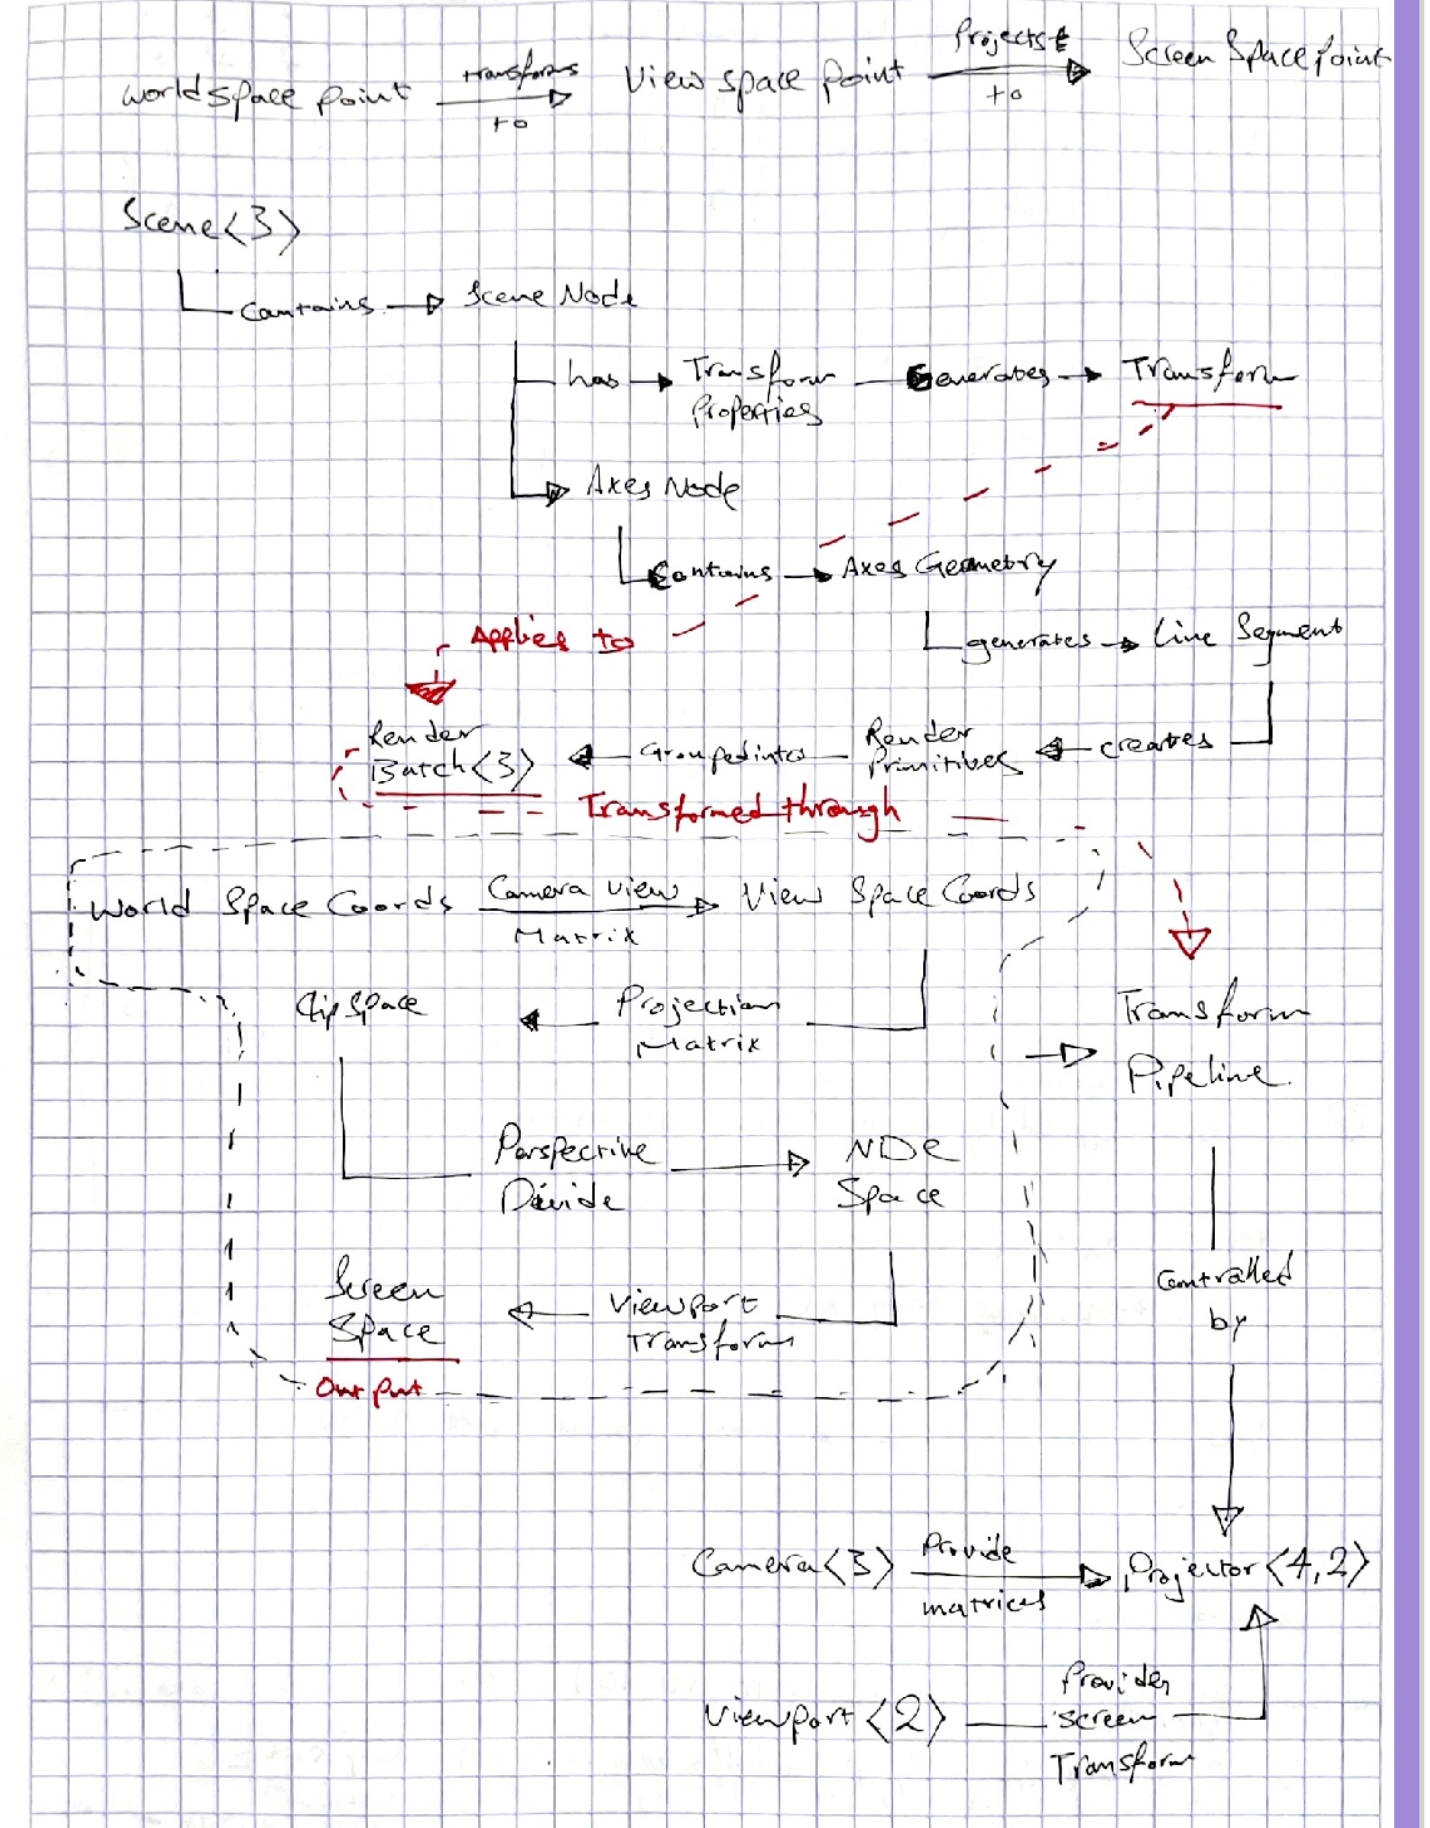 World space point transforms to View space point Projects to Screen Space point
Scene<3>
Contains Scene Node
has Transform Properties Generates Transform
Axes Node
Contains Axes Geometry
Applies to
generates Line Segment
Render Batch<3> Grouped into Render Primitives creates
Transformed through
World Space Coords Camera view Matrix View Space Coords
Clip Space Projection Matrix
Transform Pipeline
Perspective Divide NDC Space
Screen Space Viewport Transform
Controlled by
Output
Camera<3> Provide matrices Projector<4,2>
Viewport<2> Provides screen Transform